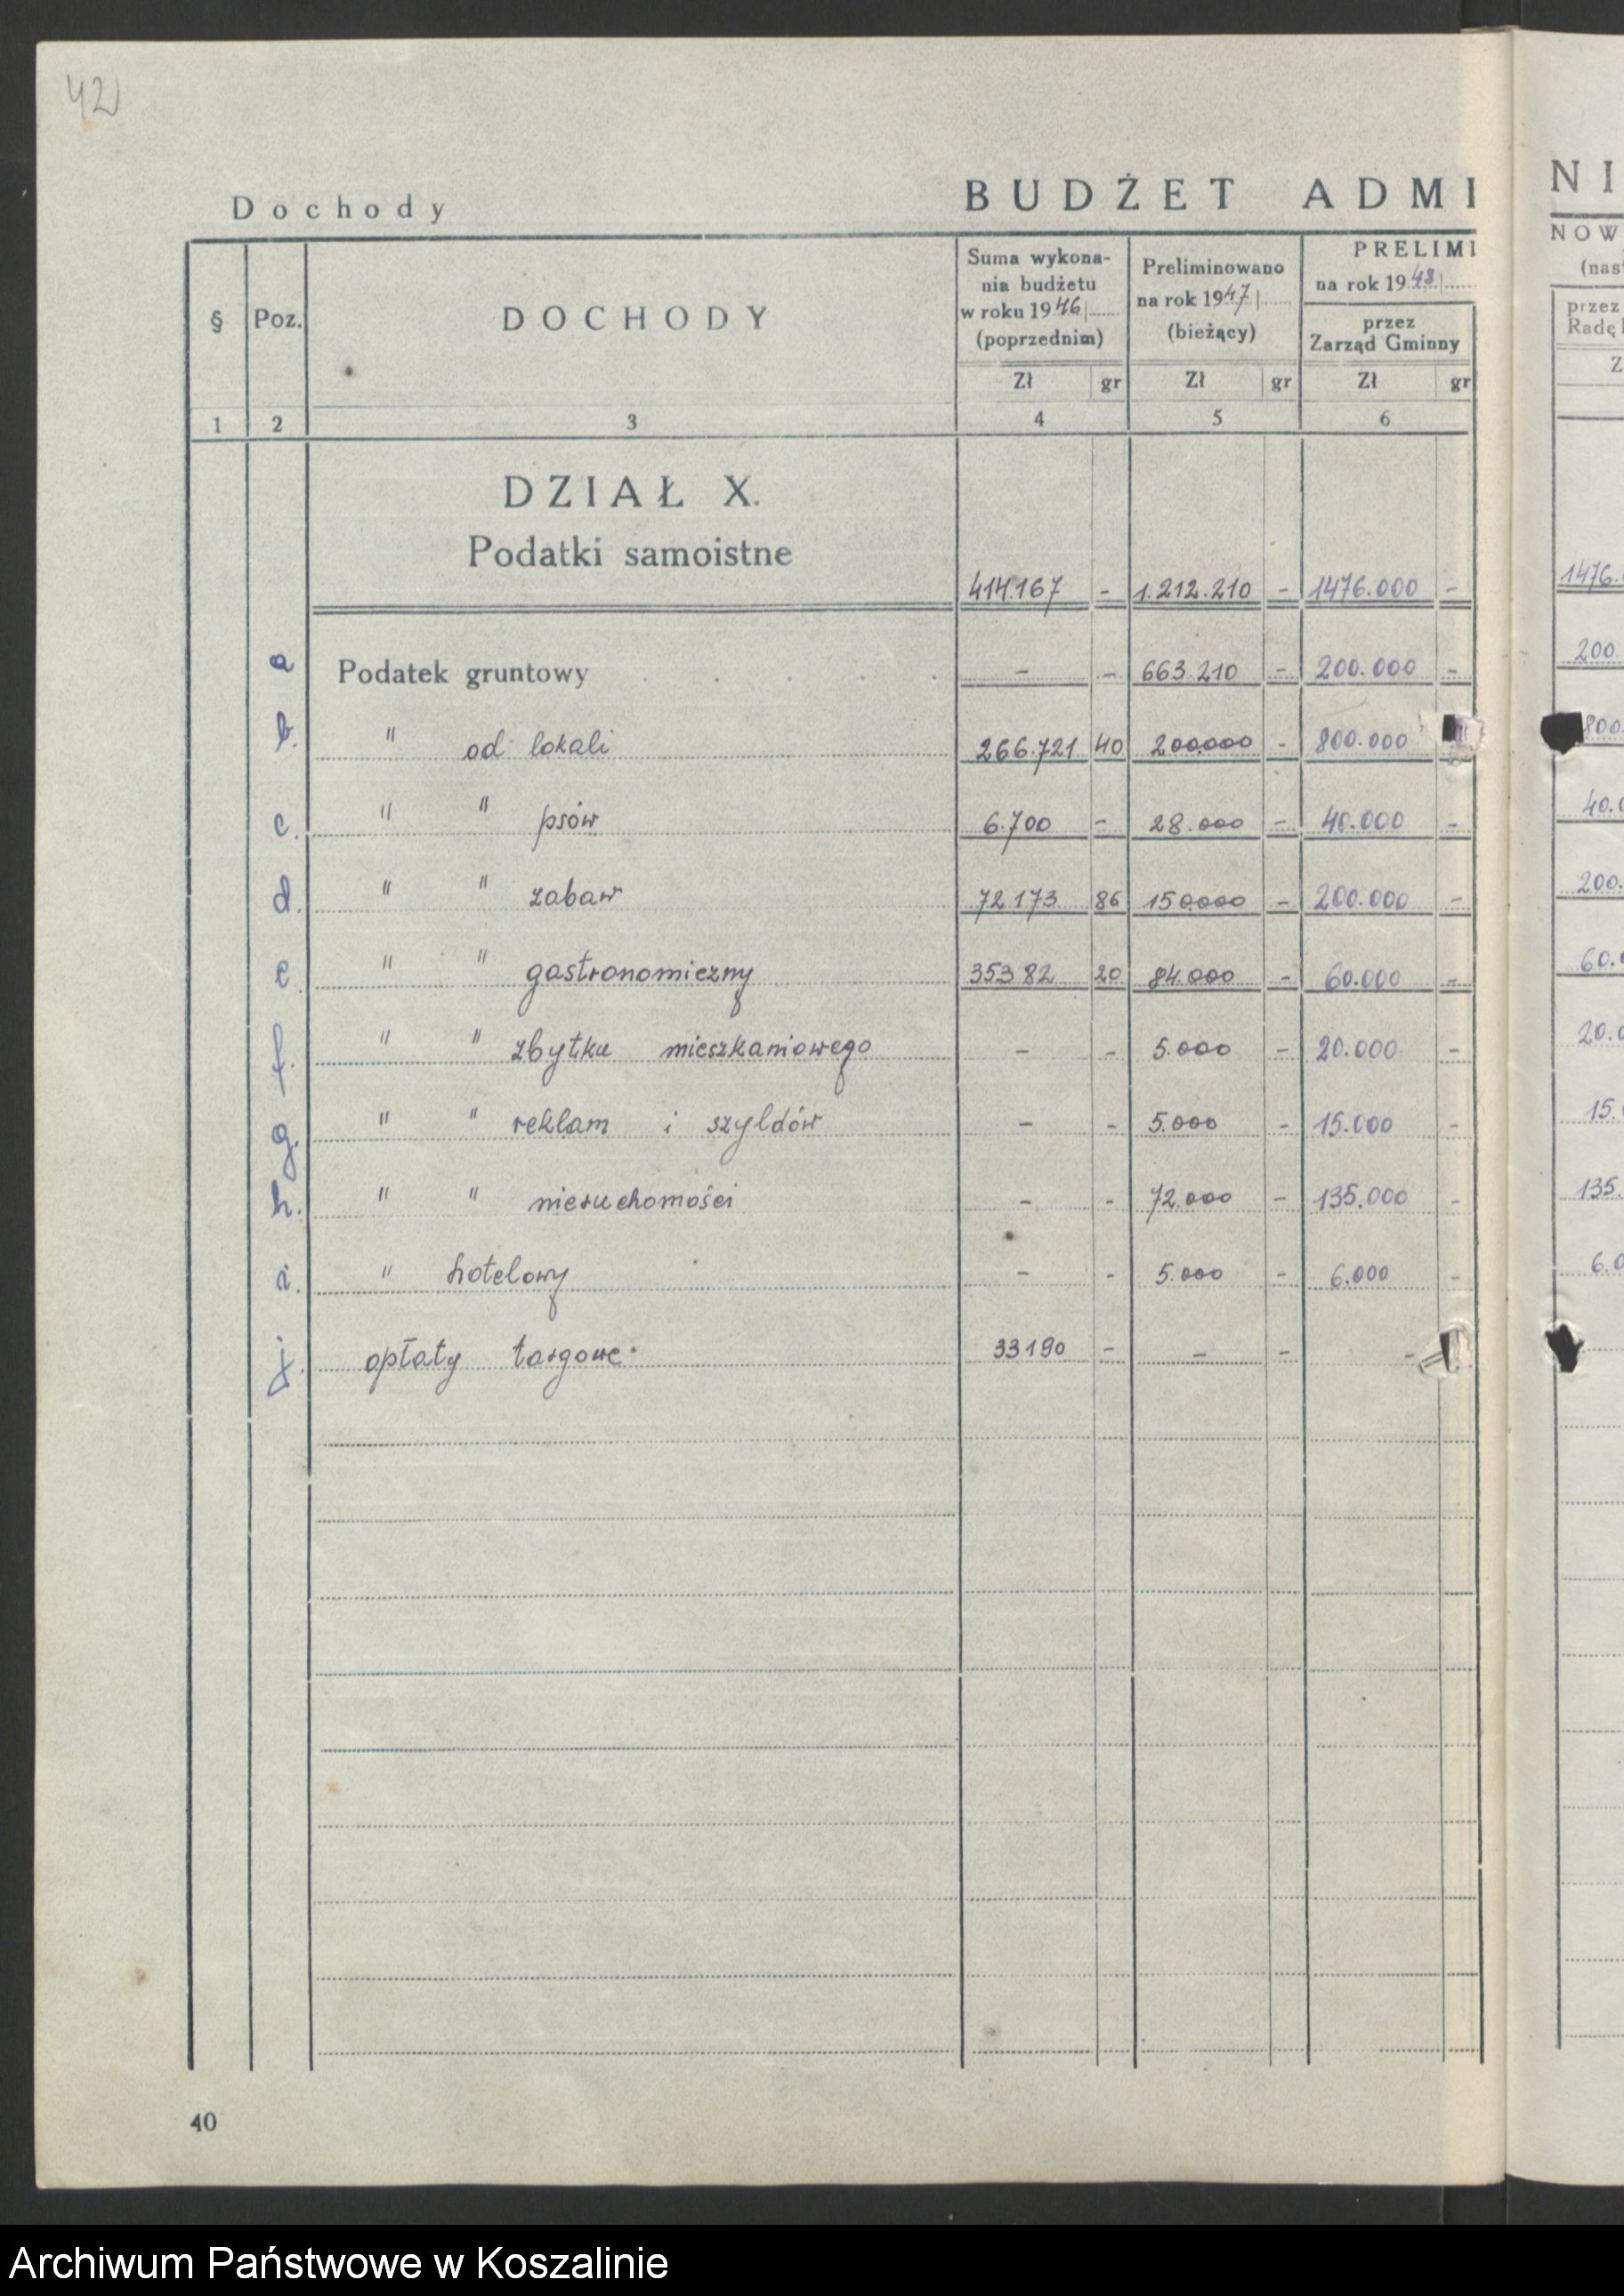 42
Dochody
BUDŻET ADMI
NI
§
Poz.
DOCHODY
Suma wykona-
nia budżetu
w roku 1946|
(poprzednim)
Preliminowano
na rok 1947|
(bieżący)
PRELIMI
na rok 1948|
przez
Zarząd Gminny
NOW
(nas
przez
Radę
Zł gr Zł gr Zł gr Z
1 2 3 4 5 6
DZIAŁ X.
Podatki samoistne
414.167 - 1.212.210 - 1476.000 - 1476.
a Podatek gruntowy - - 663.210 - 200.000 - 200.
b. " od lokali 266.721 40 200.000 - 800.000 800.
c. " " psów 6.700 - 28.000 - 40.000 - 40.0
d. " " zabaw 72.173 86 150.000 - 200.000 - 200.
e. " " gastronomiczny 35382 20 84.000 - 60.000 - 60.0
f. " " zbytku mieszkaniowego - - 5.000 - 20.000 - 20.0
g. " " reklam i szyldów - - 5.000 - 15.000 - 15.
h. " " nieruchomości - - 72.000 - 135.000 - 135.
i. " hotelowy - - 5.000 - 6.000 - 6.0
j. opłaty targowe 33190 - - - -
40
Archiwum Państwowe w Koszalinie